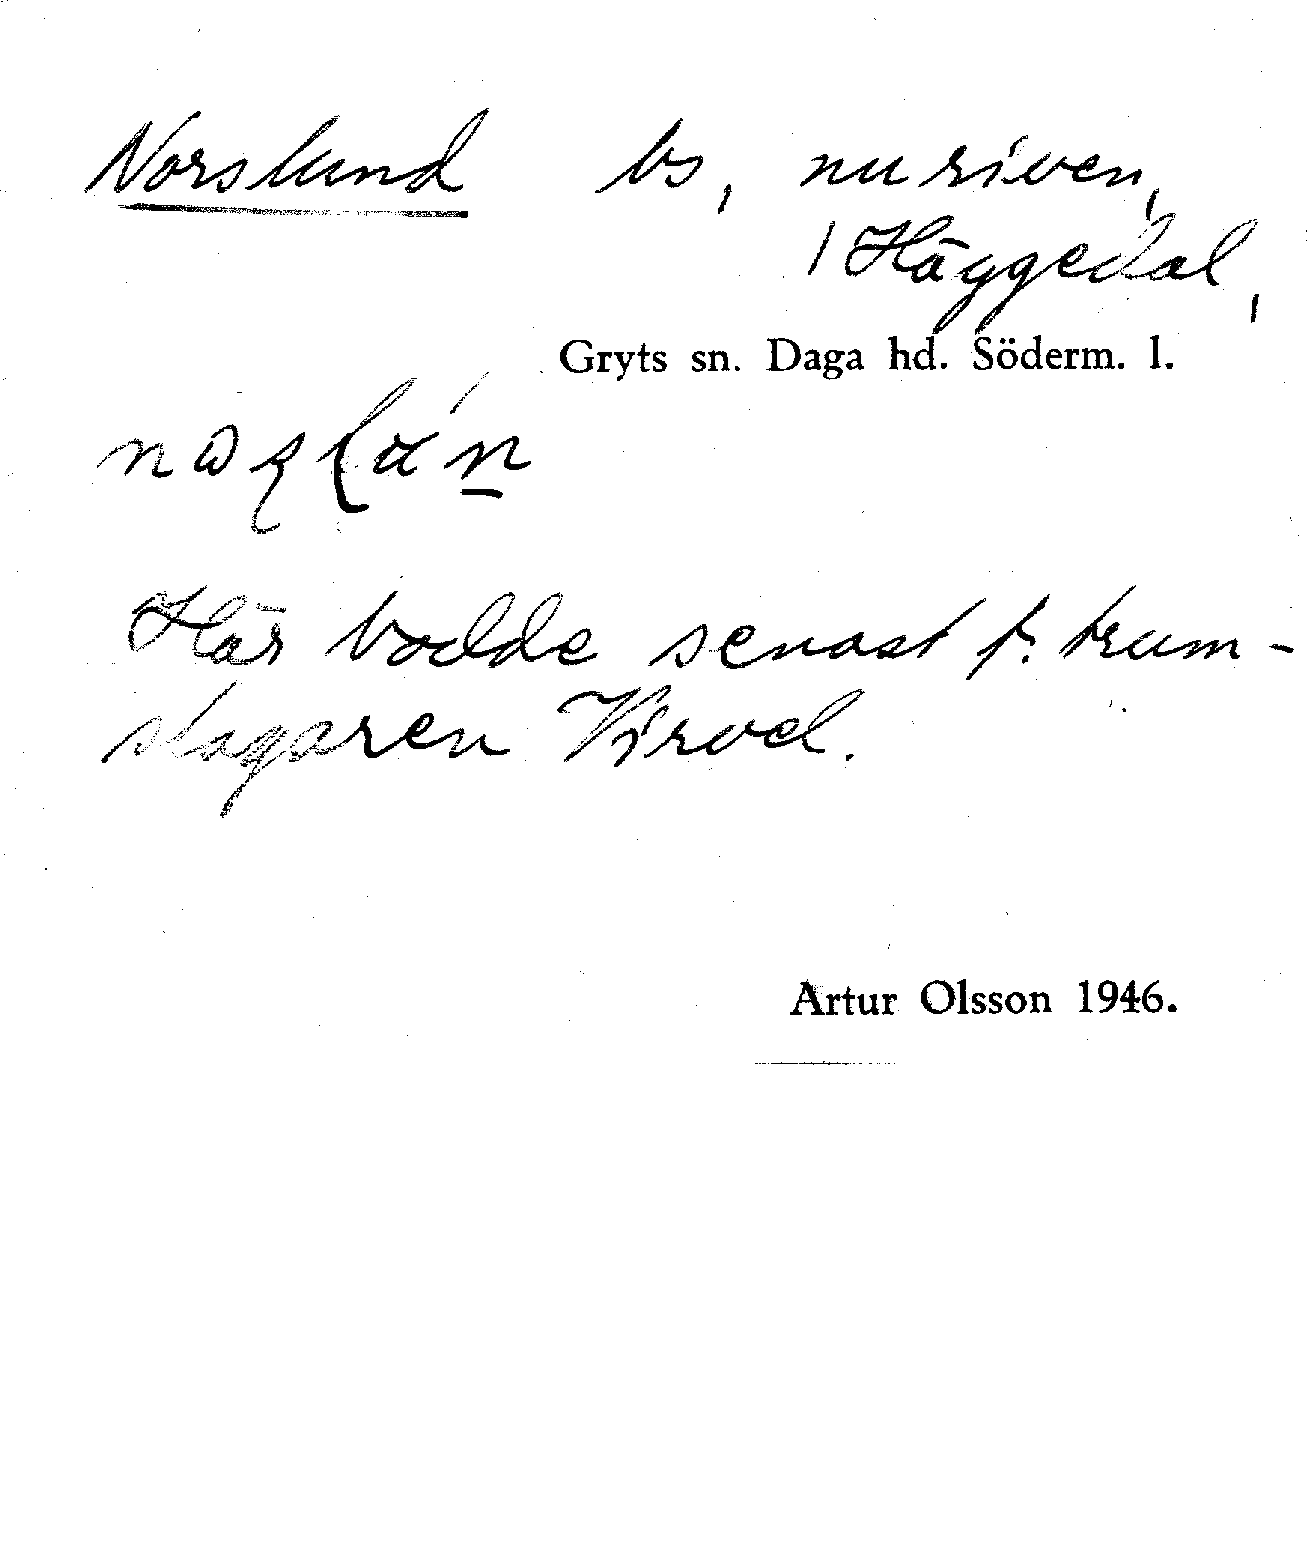 Norslund ls, nu riven,
/ Häggedal,
Gryts sn. Daga hd. Söderm. l.
Här bodde senast f. trum-
slagaren Virvel.
Artur Olsson 1946.